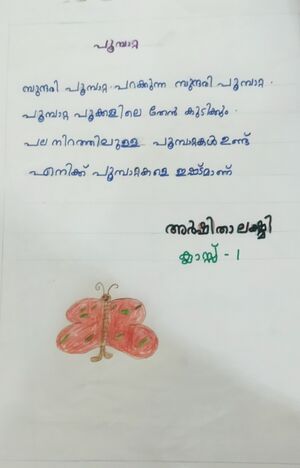 പൂമ്പാറ്റ
സുന്ദരി പൂമ്പാറ്റ പറക്കുന്ന സുന്ദരി പൂമ്പാറ്റ.
പൂമ്പാറ്റ പൂക്കളിലെ തേൻ കുടിക്കും.
പല നിറത്തിലുള്ള പൂമ്പാറ്റകൾ ഉണ്ട്
എനിക്ക് പൂമ്പാറ്റകളെ ഇഷ്ടമാണ്
അർഷിതാ ലക്ഷ്മി
ക്ലാസ്സ് - 1